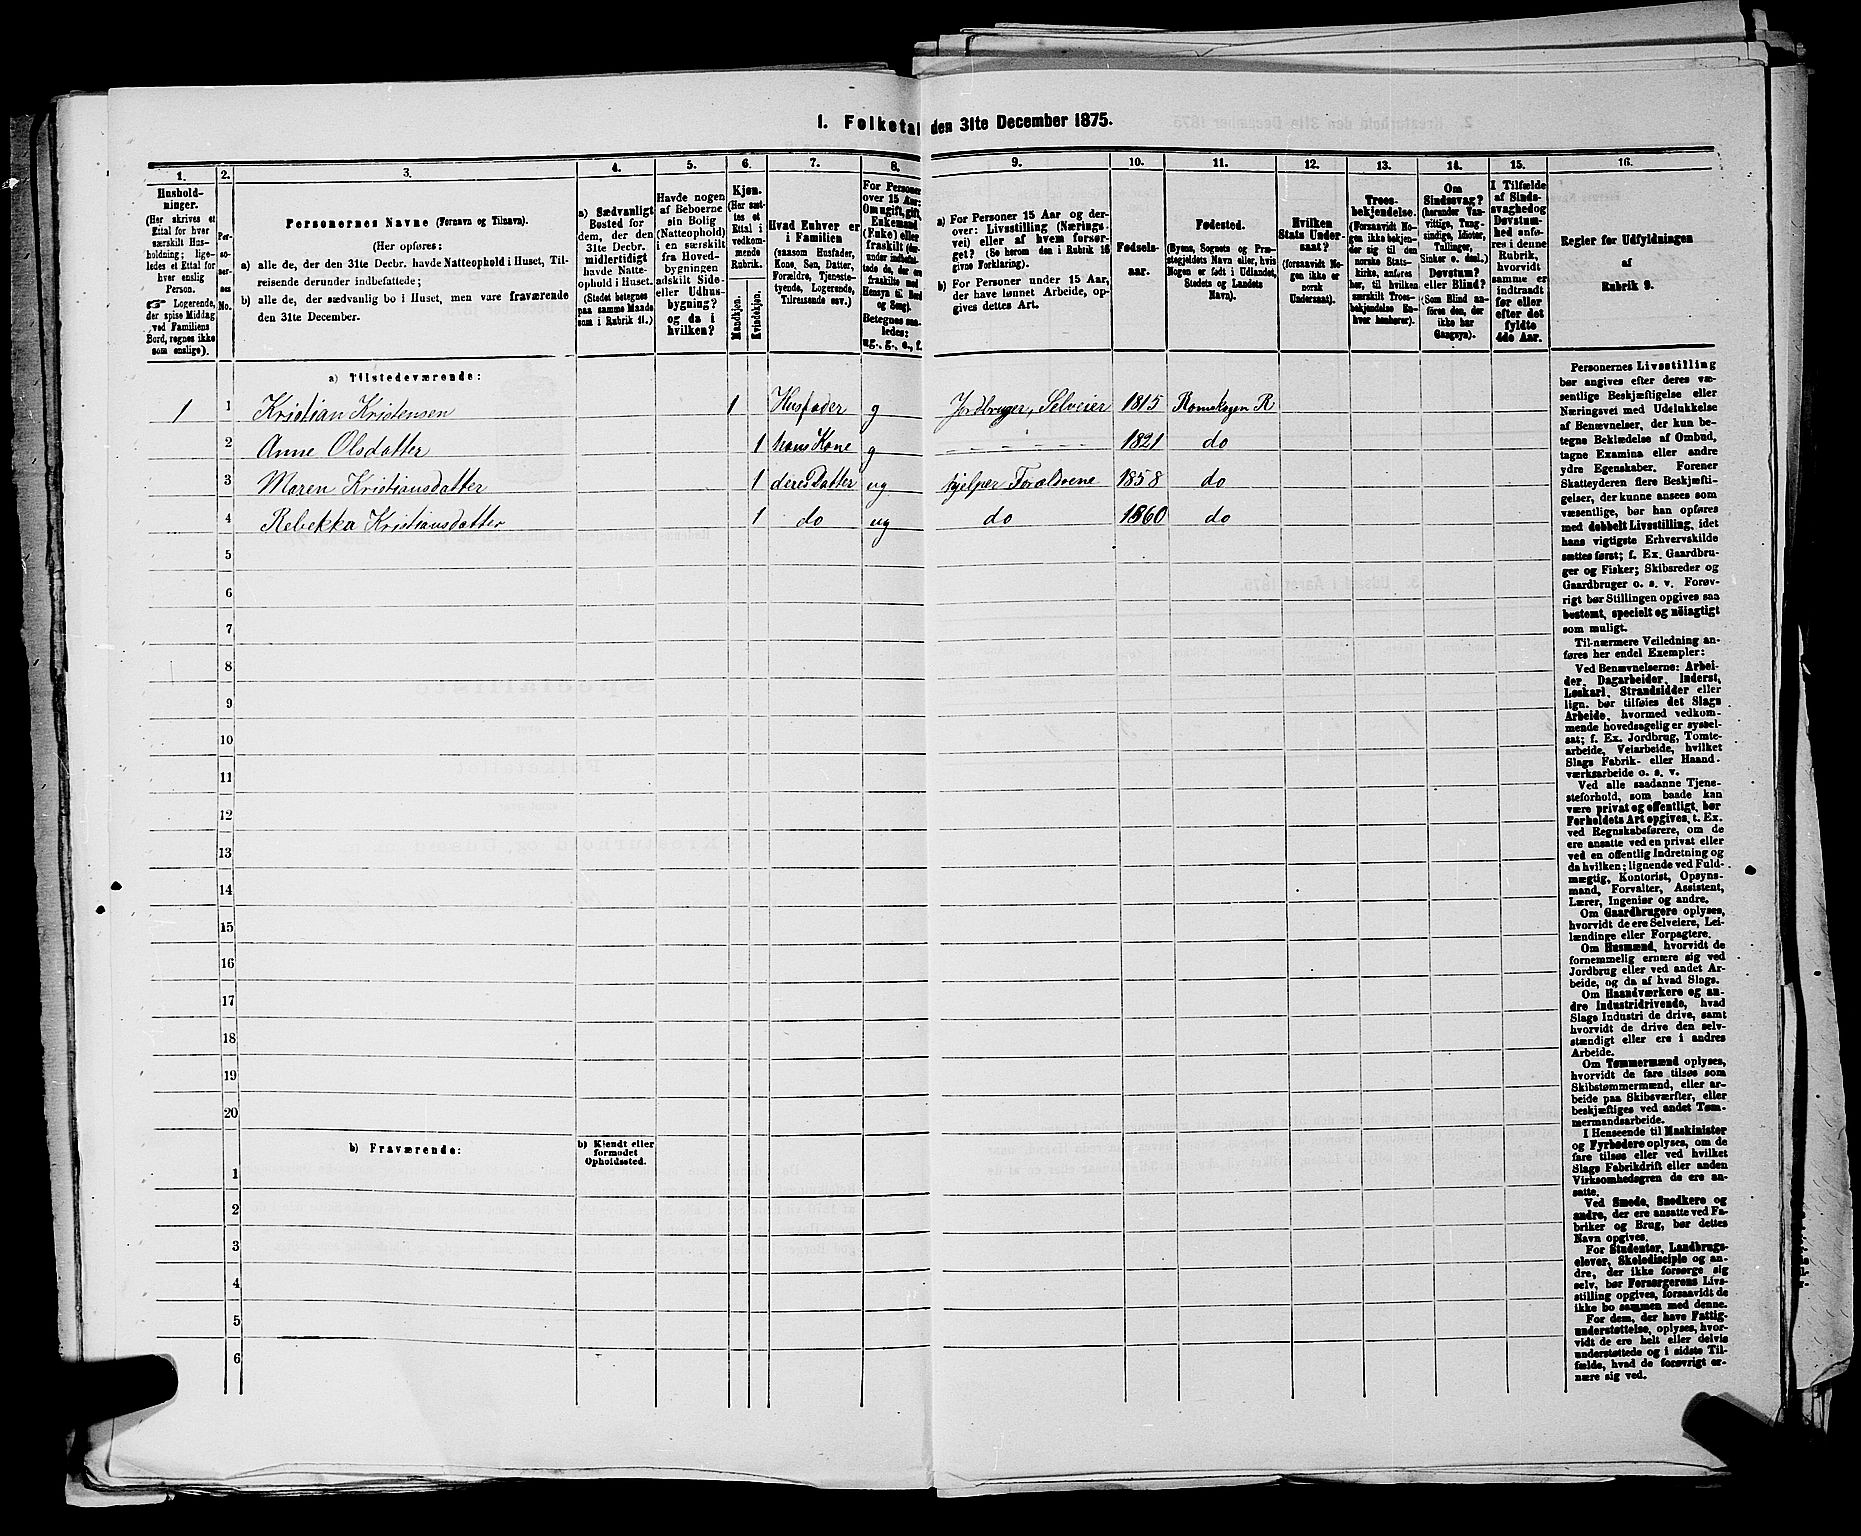 1. Folketal den 31te December 1875.
1. 2. 3. 4. 5. 6. 7. 8. 9. 10. 11. 12. 13. 14. 15. 16.
Hushold-
ninger.
(Her skrives et
Ettal for hver
særskilt Hus-
holdning; lige-
ledes et Ettal for
hver enslig
Person.
☞ Logerende,
der spise Middag
ved Familiens
Bord, regnes ikke
som enslige).
Per-
so-
ner-
nes
No.
Personernes Navne (Fornavn og Tilnavn).
(Her opføres:
a) alle de, der den 31te Decbr. havde Natteophold i Huset, Til-
reisende derunder indbefattede;
b) alle de, der sædvanlig bo i Huset, men vare fraværende
den 31te December.
a) Sædvanligt
Bosted for
dem, der den
31te Decbr.
midlertidigt
havde Natte-
ophold i Huset.
(Stedet betegnes
paa samme Maade
som i Rubrik 11.)
Havde nogen
af Beboerne
sin Bolig
(Natteophold)
i en særskilt
fra Hoved-
bygningen
adskilt Side-
eller Udhus-
bygning?
og da i
hvilken?
Kjøn.
(Her sæt-
tes et
Ettal i
vedkom-
mende
Rubrik.
Mandkjøn.
Kvindekjøn.
Hvad Enhver er
i Familien
(saasom Husfader,
Kone, Søn, Datter,
Forældre, Tjeneste-
tyende, Logerende,
Tilreisende osv.)
For Personer
over 15 Aar:
Om ugift, gift,
Enkemand
(Enke) eller
fraskilt (der-
under indbefat-
tede de, der ere
fraskilte med
Hensyn til Bord
og Seng).
Betegnes saa-
ledes:
ug., g., e., f.
a) For Personer 15 Aar og der-
over: Livsstilling (Nærings-
vei) eller af hvem forsør-
get? (Se herom den i Rubrik 16
givne Forklaring).
b) For Personer under 15 Aar,
der have lønnet Arbeide, op-
gives dettes Art.
Fødsels-
aar.
Fødested.
(Byens, Sognets og Præ-
stegjeldets Navn eller, hvis
Nogen er født i Udlandet,
Stedets og Landets
Navn).
Hvilken
Stats Under-
saat?
(forsaavidt No-
gen ikke er
norsk
Undersaat).
Troes-
bekjendelse.
(Forsaavidt No-
gen ikke bekjen-
der sig til den
norske Stats-
kirke, anføres
her, til hvilken
særskilt Troes-
bekjendelse En-
hver henhører).
Om
Sindssvag?
(herunder Van-
vittige, Tung-
sindige, Idioter,
Tullinger,
Sinker o. desl.)
Døvstum?
eller Blind?
(Som Blind an-
føres den, der
ikke har
Gangsyn).
I Tilfælde
af Sinds-
svaghed og
Døvstum-
hed anfø-
res i denne
Rubrik,
hvorvidt
samme er
indtraadt
før eller
efter det
fyldte
4de Aar.
Regler for Udfyldningen
af
Rubrik 9.
a) Tilstedeværende:
1 1 Kristian Kristensen 1 Husfader g Jordbruger, Selveier 1815 Romskogen R
2 Anne Olsdatter 1 hans Kone g 1821 do
3 Maren Kristiansdatter 1 deres Datter ug hjelper Forældrene 1858 do
4 Rebekka Kristiansdatter 1 do ug do 1860 do
5
6
7
8
9
10
11
12
13
14
15
16
17
18
19
20
b) Fraværende:
b) Kjendt eller
formodet
Opholdssted.
1
2
3
4
5
6
Personernes Livsstilling
bør angives efter deres væ-
sentlige Beskjæftigelse eller
Næringsvei med Udelukkelse
af Benævnelser, der kun be-
tegne Beklædelse af Ombud,
tagne Examina eller andre
ydre Egenskaber. Forener
Skatteyderen flere Beskjæfti-
gelser, der kunne ansees som
væsentlige, bør han opføres
med dobbelt Livsstilling, idet
hans vigtigste Erhvervskilde
sættes først; f. Ex. Gaardbru-
ger og Fisker; Skibsreder og
Gaardbruger o. s. v. Forøv-
rigt bør Stillingen opgives saa
bestemt, specielt og nöiagtigt
som muligt.
Til nærmere Veiledning an-
føres her endel Exempler:
Ved Benævnelserne: Arbei-
der, Dagarbeider, Inderst,
Løskarl, Strandsidder eller
lign. bør tilføies det Slags
Arbeide, hvormed vedkom-
mende hovedsagelig er syssel-
sat; f. Ex. Jordbrug, Tomte-
arbeide, Veiarbeide, hvilket
Slags Fabrik- eller Haand-
værksarbeide o. s. v.
Ved alle saadanne Tjene-
steforhold, som baade kan
være privat og offentligt, bør
Forholdets Art opgives, t. Ex.
ved Regnskabsførere, om de
ere ansatte ved en privat eller
ved en offentlig Indretning og
da hvilken; lignende ved Fuld-
mægtig, Kontorist, Opsyns-
mand, Forvalter, Assistent,
Lærer, Ingeniør og andre.
Om Gaardbrugere oplyses,
hvorvidt de ere Selveiere, Lei-
lændinge eller Forpagtere.
Om Husmænd, hvorvidt de
fornemmelig ernære sig ved
Jordbrug eller ved andet Ar-
beide, og da af hvad Slags.
Om Haandværkere og an-
dre Industridrivende, hvad
Slags Industri de drive, samt
hvorvidt de drive den selv-
stændigt eller ere i andres
Arbeide.
Om Tømmermænd oplyses,
hvorvidt de fare tilsøs som
Skibstømmermænd, eller ar-
beide paa Skibsværfter, eller
beskjæftiges ved andet Tøm-
mermandsarbeide.
I Henseende til Maskinister
og Fyrbødere oplyses, om de
fare tilsøs eller ved hvilket
Slags Fabrikdrift eller anden
Virksomhedsgren de ere an-
satte.
Ved Smede, Snedkere og
andre, der ere ansatte ved Fa-
briker og Brug, bør dettes
Navn opgives.
For Studenter, Landbrugs-
elever, Skoledisciple og an-
dre, der ikke forsørge sig
selv, bør Forsørgerens Livs-
stilling opgives, forsaavidt de
ikke bo sammen med denne.
For dem, der have Fattig-
understøttelse, oplyses, hvor-
vidt de ere helt eller delvis
understøttede og i sidste Til-
fælde, hvad de forøvrigt er-
nære sig ved.